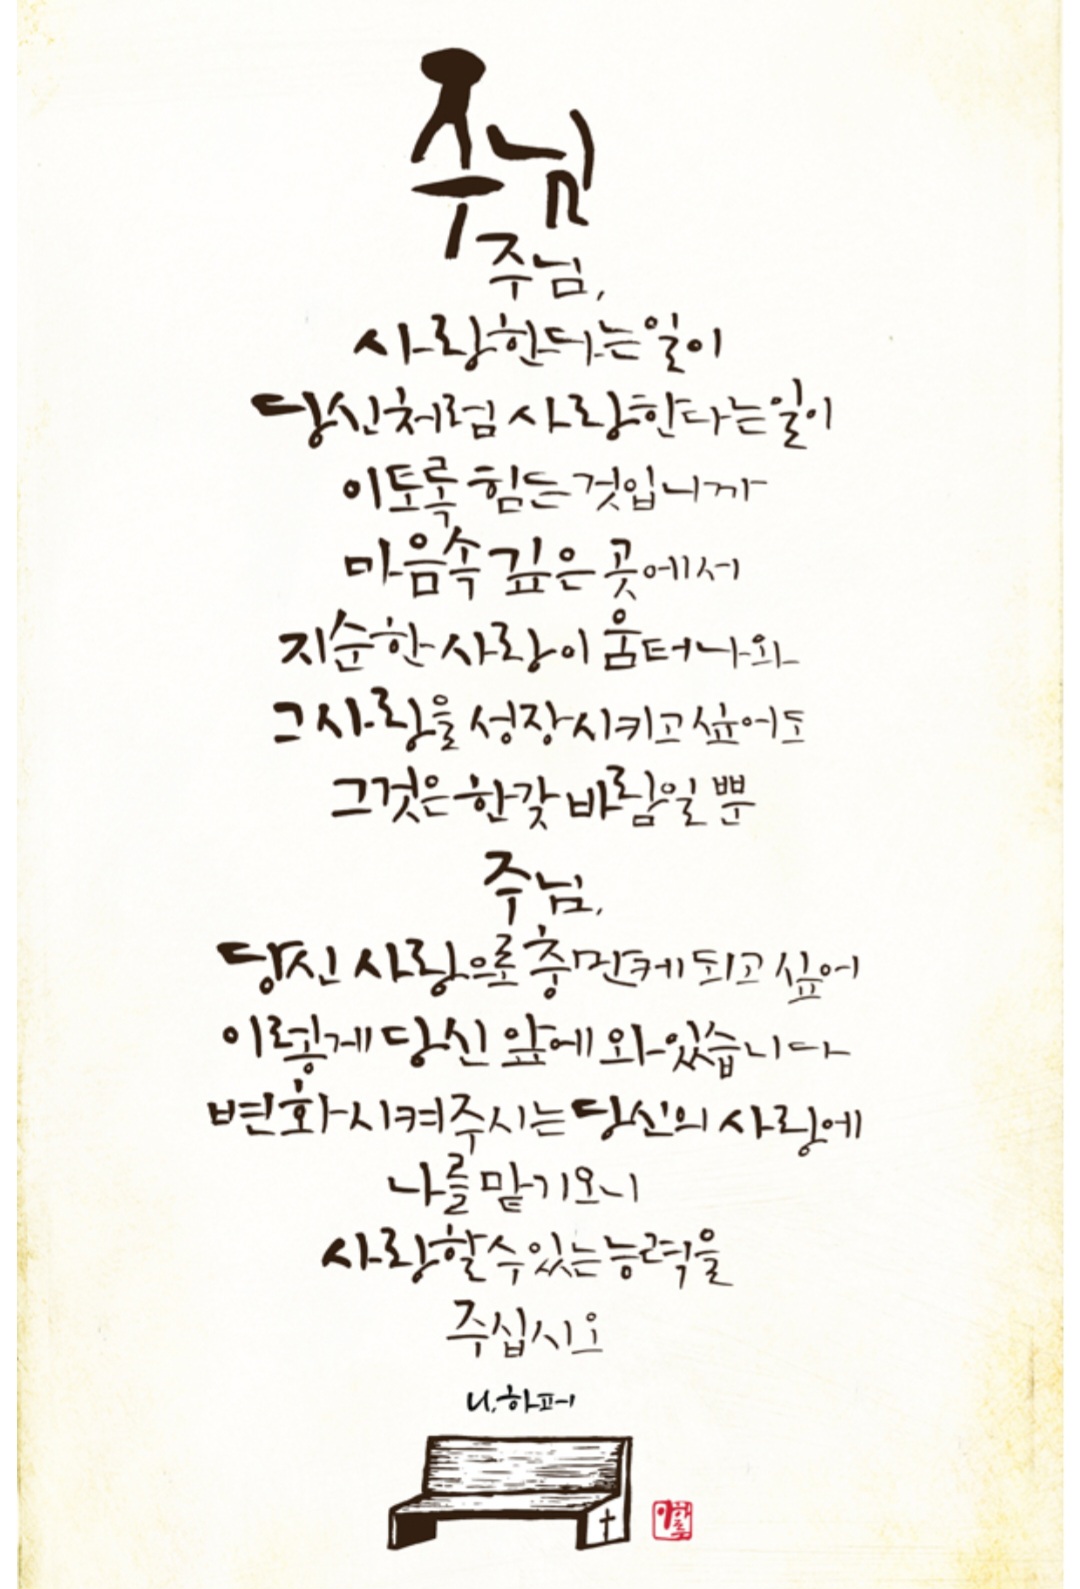 주님
주님,
사랑한다는 일이
당신처럼 사랑한다는 일이
이토록 힘든 것입니까
마음속 깊은 곳에서
지순한 사랑이 움터나와
그 사랑을 성장시키고 싶어도
그것은 한갖 바람일 뿐
주님,
당신 사랑으로 충만케 되고 싶어
이렇게 당신 앞에 와 있습니다
변화시켜주시는 당신의 사랑에
나를 맡기오니
사랑할 수 있는 능력을
주십시오
니.하페